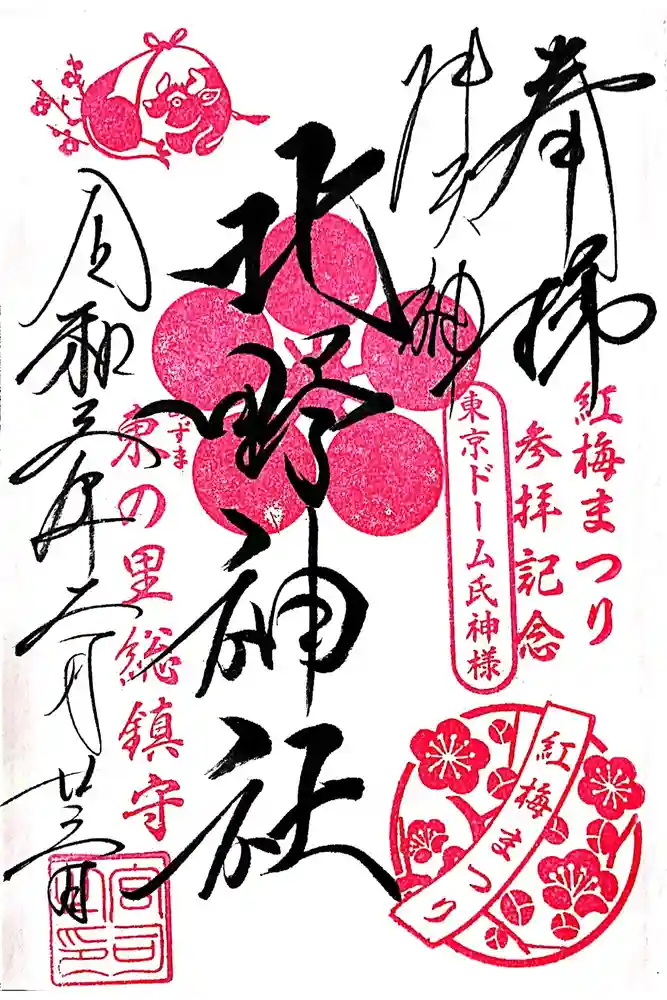 奉拝
牛天神
紅梅まつり
参拝記念
東京ドーム氏神様
北野神社
あずま
東の里総鎮守
令和五年二月廿三日
宮司之印
紅梅まつり